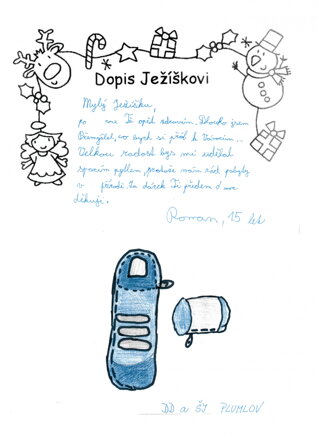 Dopis Ježíškovi
Milý Ježíšku,
po roce Tě opět zdravím. Dlouho jsem
přemýšlel, co bych si přál k Vánocům.
Velkou radost bys mi udělal
spacím pytlem, protože mám rád pobyty
v přírodě. Za dárek Ti předem moc
děkuji.
Roman, 15 let
DD a ŠJ PLUMLOV